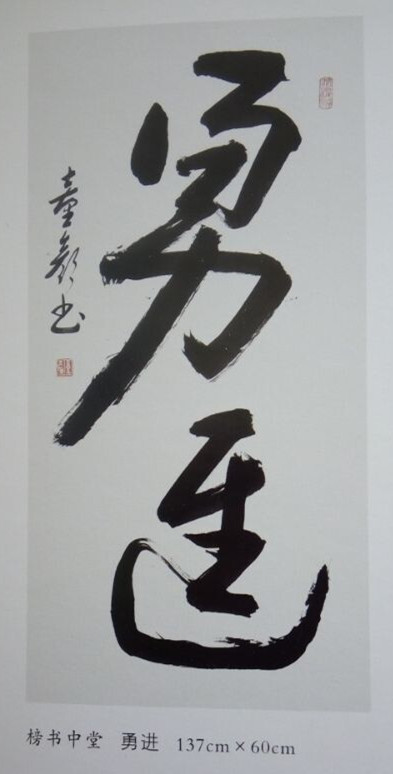 勇進
童彦书
榜书中堂 勇进 137cm×60cm